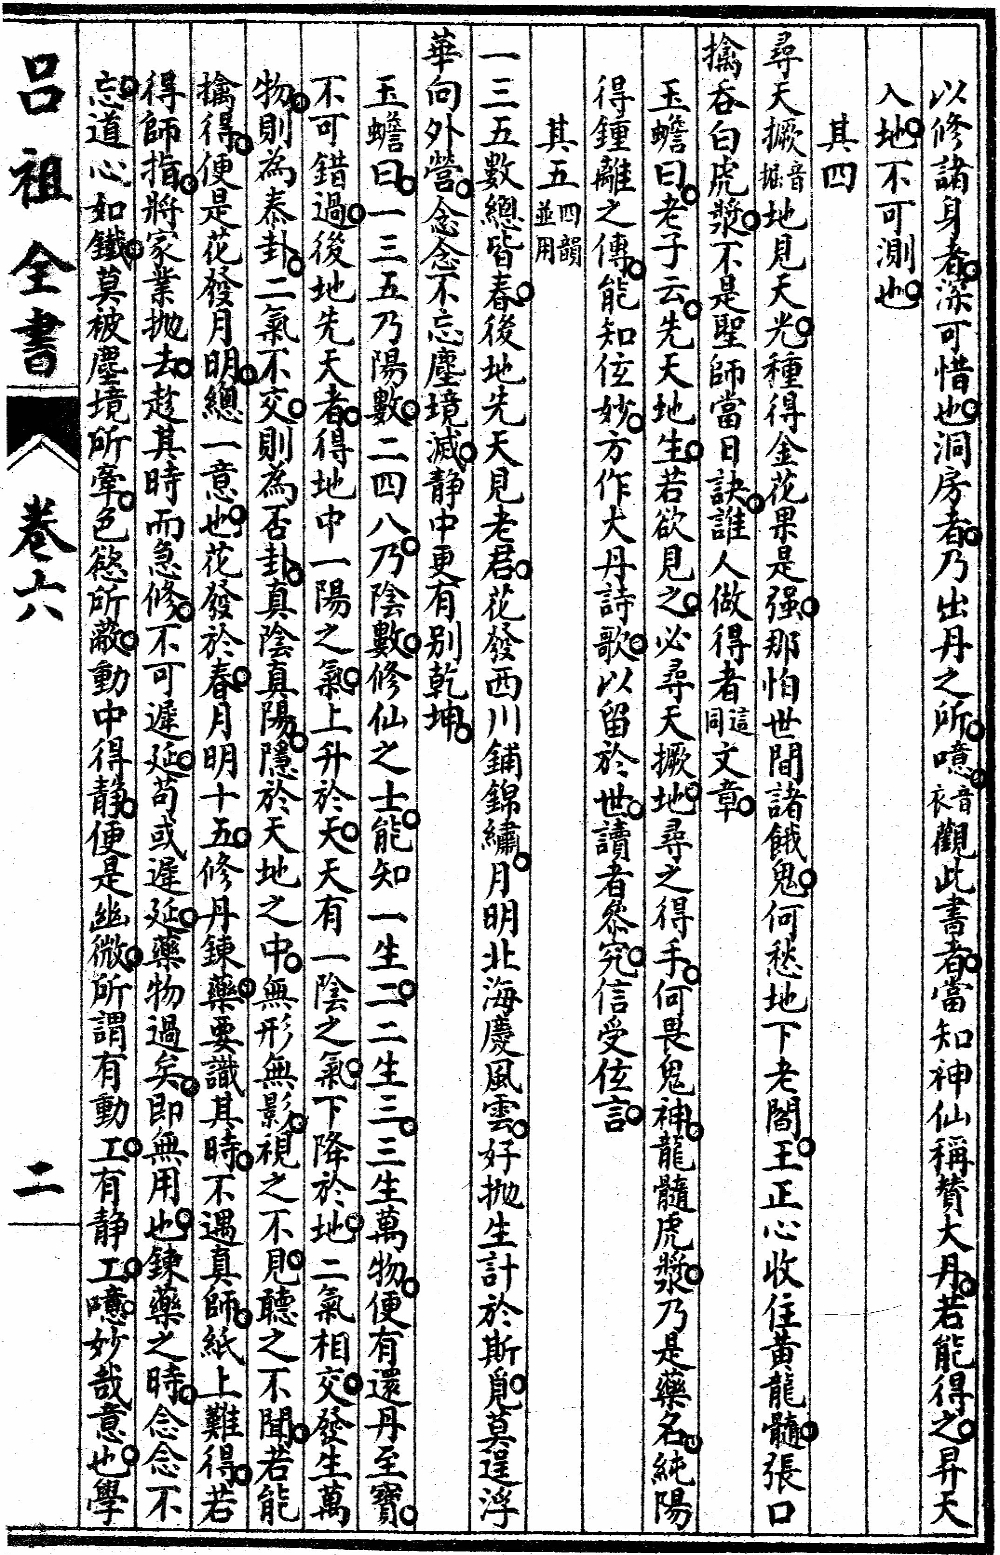 以修諸身者深可惜也洞房者乃出丹之所噫音衣觀此書者當知神仙稱贊大丹若能得之昇天
入地不可測也
其四
尋天撅音掘地見天光種得金花果是强那怕世間諸餓鬼何愁地下老閻王正心收住黄龍髓張口
擒吞白虎漿不是聖師當日訣誰人做得者這同文章
玉蟾曰老子云先天地生若欲見之必尋天撅地尋之得手何畏鬼神龍髓虎漿乃是藥名純陽
得鍾離之傳能知伭妙方作大丹詩歌以留於世讀者叅究信受伭言
其五四韻並用
一三五數總皆春後地先天見老君花發西川鋪錦繡月明北海慶風雲好抛生計於斯覓莫逞浮
華向外營念念不忘塵境滅静中更有别乾坤
玉蟾曰一三五乃陽數二四八乃陰數修仙之士能知一生二二生三三生萬物便有還丹至寶
不可錯過後地先天者得地中一陽之氣上升於天天有一陰之氣下降於地二氣相交發生萬
物則為泰卦二氣不交則為否卦真陰真陽隱於天地之中無形無影視之不見聽之不聞若能
擒得便是花發月明總一意也花發於春月明十五修丹鍊藥要識其時不遇真師紙上難得若
得師指將家業抛去趁其時而急修不可遲延苟或遲延藥物過矣即無用也鍊藥之時念念不
忘道心如鐵莫被塵境所牽色慾所蔽動中得静便是幽微所謂有動工有静工噫妙哉意也學
吕祖全書
卷六
二